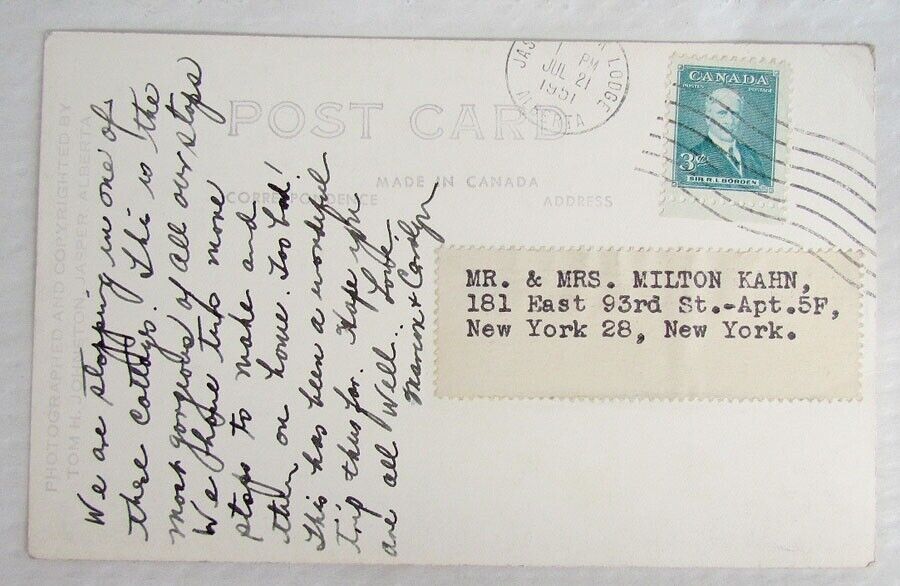 POST CARD
MADE IN CANADA
CORRESPONDENCE
ADDRESS
PHOTOGRAPHED AND COPYRIGHTED BY
TOM H. JOHNSTON, JASPER, ALBERTA
We are stopping in one of
these cottages. This is the
most gorgeous of all our stops
We have two more
stops to make and
then on home. Too bad!
This has been a wonderful
trip thus far. Hope you
are all well. Love
Marion & Carolyn
JAS LODGE
1 PM
JUL 21
1951
ALBERTA
CANADA
POSTES POSTAGE
3¢
SIR R. L. BORDEN
MR. & MRS. MILTON KAHN,
181 East 93rd St.-Apt.5F,
New York 28, New York.